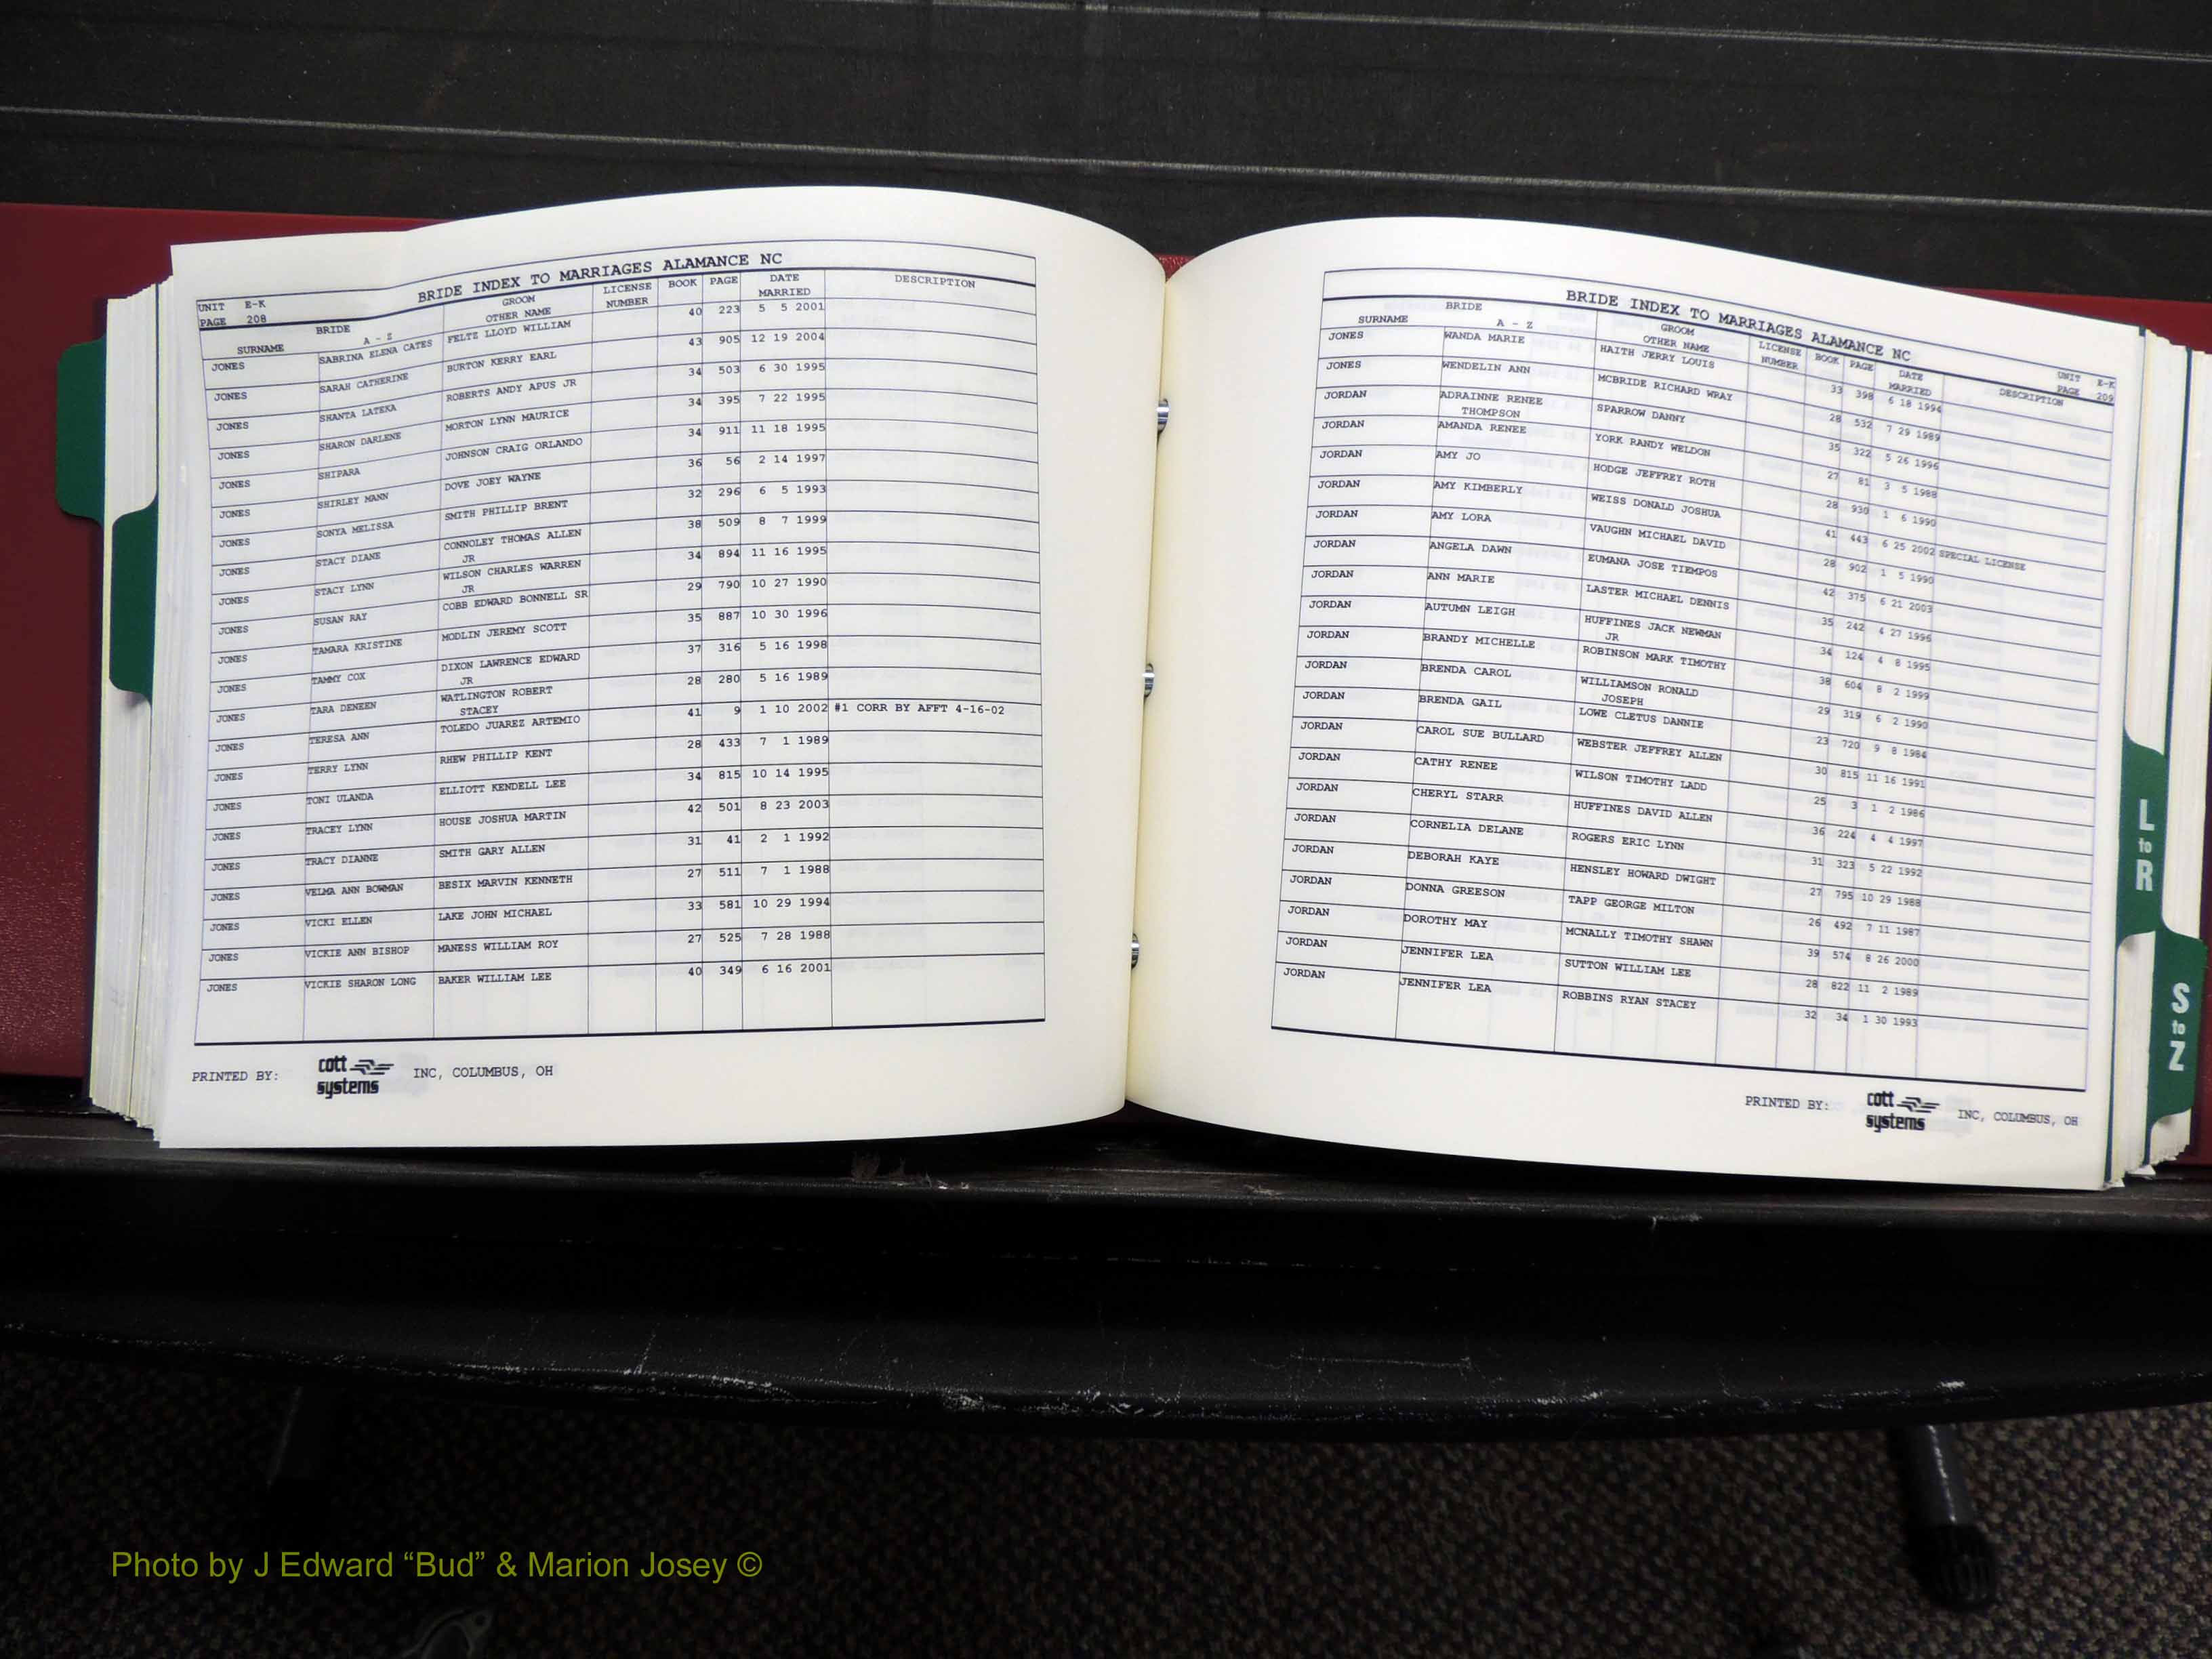 BRIDE INDEX TO MARRIAGES ALAMANCE NC
UNIT E-K
PAGE 208
BRIDE GROOM LICENSE BOOK PAGE DATE DESCRIPTION
SURNAME A - Z OTHER NAME NUMBER MARRIED
JONES SABRINA ELENA CATES FELTZ LLOYD WILLIAM 40 223 5 5 2001
JONES SARAH CATHERINE BURTON KERRY EARL 43 905 12 19 2004
JONES SHANTA LATEKA ROBERTS ANDY APUS JR 34 503 6 30 1995
JONES SHARON DARLENE MORTON LYNN MAURICE 34 395 7 22 1995
JONES SHIPARA JOHNSON CRAIG ORLANDO 34 911 11 18 1995
JONES SHIRLEY MANN DOVE JOEY WAYNE 36 56 2 14 1997
JONES SONYA MELISSA SMITH PHILLIP BRENT 32 296 6 5 1993
JONES STACY DIANE CONNOLEY THOMAS ALLEN 38 509 8 7 1999
JR
JONES STACY LYNN WILSON CHARLES WARREN 34 894 11 16 1995
JR
JONES SUSAN RAY COBB EDWARD BONNELL SR 29 790 10 27 1990
JONES TAMARA KRISTINE MODLIN JEREMY SCOTT 35 887 10 30 1996
JONES TAMMY COX DIXON LAWRENCE EDWARD 37 316 5 16 1998
JR
JONES TARA DENEEN WATLINGTON ROBERT 28 280 5 16 1989
STACEY
JONES TERESA ANN TOLEDO JUAREZ ARTEMIO 41 9 1 10 2002 #1 CORR BY AFFT 4-16-02
JONES TERRY LYNN RHEW PHILLIP KENT 28 433 7 1 1989
JONES TONI ULANDA ELLIOTT KENDELL LEE 34 815 10 14 1995
JONES TRACEY LYNN HOUSE JOSHUA MARTIN 42 501 8 23 2003
JONES TRACY DIANNE SMITH GARY ALLEN 31 41 2 1 1992
JONES VELMA ANN BOWMAN BESIX MARVIN KENNETH 27 511 7 1 1988
JONES VICKI ELLEN LAKE JOHN MICHAEL 33 581 10 29 1994
JONES VICKIE ANN BISHOP MANESS WILLIAM ROY 27 525 7 28 1988
JONES VICKIE SHARON LONG BAKER WILLIAM LEE 40 349 6 16 2001
PRINTED BY: cott systems INC, COLUMBUS, OH
BRIDE INDEX TO MARRIAGES ALAMANCE NC
UNIT E-K
PAGE 209
BRIDE GROOM LICENSE BOOK PAGE DATE DESCRIPTION
SURNAME A - Z OTHER NAME NUMBER MARRIED
JONES WANDA MARIE HAITH JERRY LOUIS 33 398 6 18 1994
JONES WENDELIN ANN MCBRIDE RICHARD WRAY 28 532 7 29 1989
JORDAN ADRAINNE RENEE SPARROW DANNY 35 322 5 26 1996
THOMPSON
JORDAN AMANDA RENEE YORK RANDY WELDON 27 81 3 5 1988
JORDAN AMY JO HODGE JEFFREY ROTH 28 930 1 6 1990
JORDAN AMY KIMBERLY WEISS DONALD JOSHUA 41 443 6 25 2002 SPECIAL LICENSE
JORDAN AMY LORA VAUGHN MICHAEL DAVID 28 902 1 5 1990
JORDAN ANGELA DAWN EUMANA JOSE TIEMPOS 42 375 6 21 2003
JORDAN ANN MARIE LASTER MICHAEL DENNIS 35 242 4 27 1996
JORDAN AUTUMN LEIGH HUFFINES JACK NEWMAN 34 124 4 8 1995
JR
JORDAN BRANDY MICHELLE ROBINSON MARK TIMOTHY 38 604 8 2 1999
JORDAN BRENDA CAROL WILLIAMSON RONALD 29 319 6 2 1990
JOSEPH
JORDAN BRENDA GAIL LOWE CLETUS DANNIE 23 720 9 8 1984
JORDAN CAROL SUE BULLARD WEBSTER JEFFREY ALLEN 30 815 11 16 1991
JORDAN CATHY RENEE WILSON TIMOTHY LADD 25 3 1 2 1986
JORDAN CHERYL STARR HUFFINES DAVID ALLEN 36 224 4 4 1997
JORDAN CORNELIA DELANE ROGERS ERIC LYNN 31 323 5 22 1992
JORDAN DEBORAH KAYE HENSLEY HOWARD DWIGHT 27 795 10 29 1988
JORDAN DONNA GREESON TAPP GEORGE MILTON 26 492 7 11 1987
JORDAN DOROTHY MAY MCNALLY TIMOTHY SHAWN 39 574 8 26 2000
JORDAN JENNIFER LEA SUTTON WILLIAM LEE 28 822 11 2 1989
JORDAN JENNIFER LEA ROBBINS RYAN STACEY 32 34 1 30 1993
PRINTED BY: cott systems INC, COLUMBUS, OH
L to R
S to Z
Photo by J Edward “Bud” & Marion Josey ©